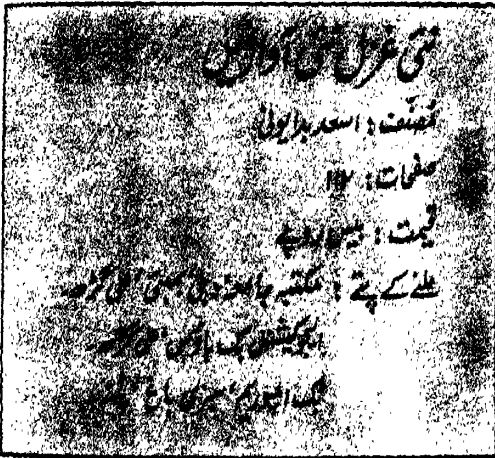 نئی غزل نئی آوازیں
مصنف : اسعد بدایونی
صفحات : ۱۱۲
قیمت : بیس روپے
ملنے کے پتے : مکتبہ جامعہ دہلی، بمبئی، علی گڑھ
ایجوکیشنل بک ہاؤس، علی گڑھ
بک امپوریم، سبزی باغ، پٹنہ